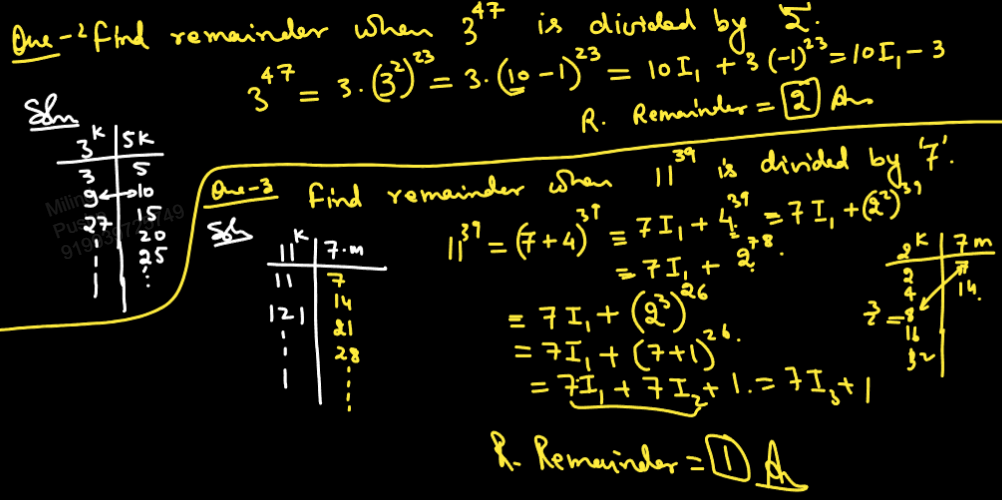 Que-2 Find remainder when 3^47 is divided by 5.
3^47 = 3.(3^2)^23 = 3.(10-1)^23 = 10I₁ + 3(-1)^23 = 10I₁ - 3
R. Remainder = 2 Ans
Soln
3^K | 5K
3 | 5
9 ↔ 10
27 | 15
20
25
Que-3 Find remainder when 11^39 is divided by '7'.
Soln
11^K | 7.m
11 | 7
14
121 | 21
28
11^39 = (7+4)^39 = 7I₁ + 4^39 = 7I₁ + (2^2)^39
= 7I₁ + 2^78.
= 7I₁ + (2^3)^26
= 7I₁ + (7+1)^26.
= 7I₁ + 7I₂ + 1. = 7I₃ + 1
2^K | 7m
2 | 7
4 | 14.
2^3 = 8
16
32
R. Remainder = 1 An